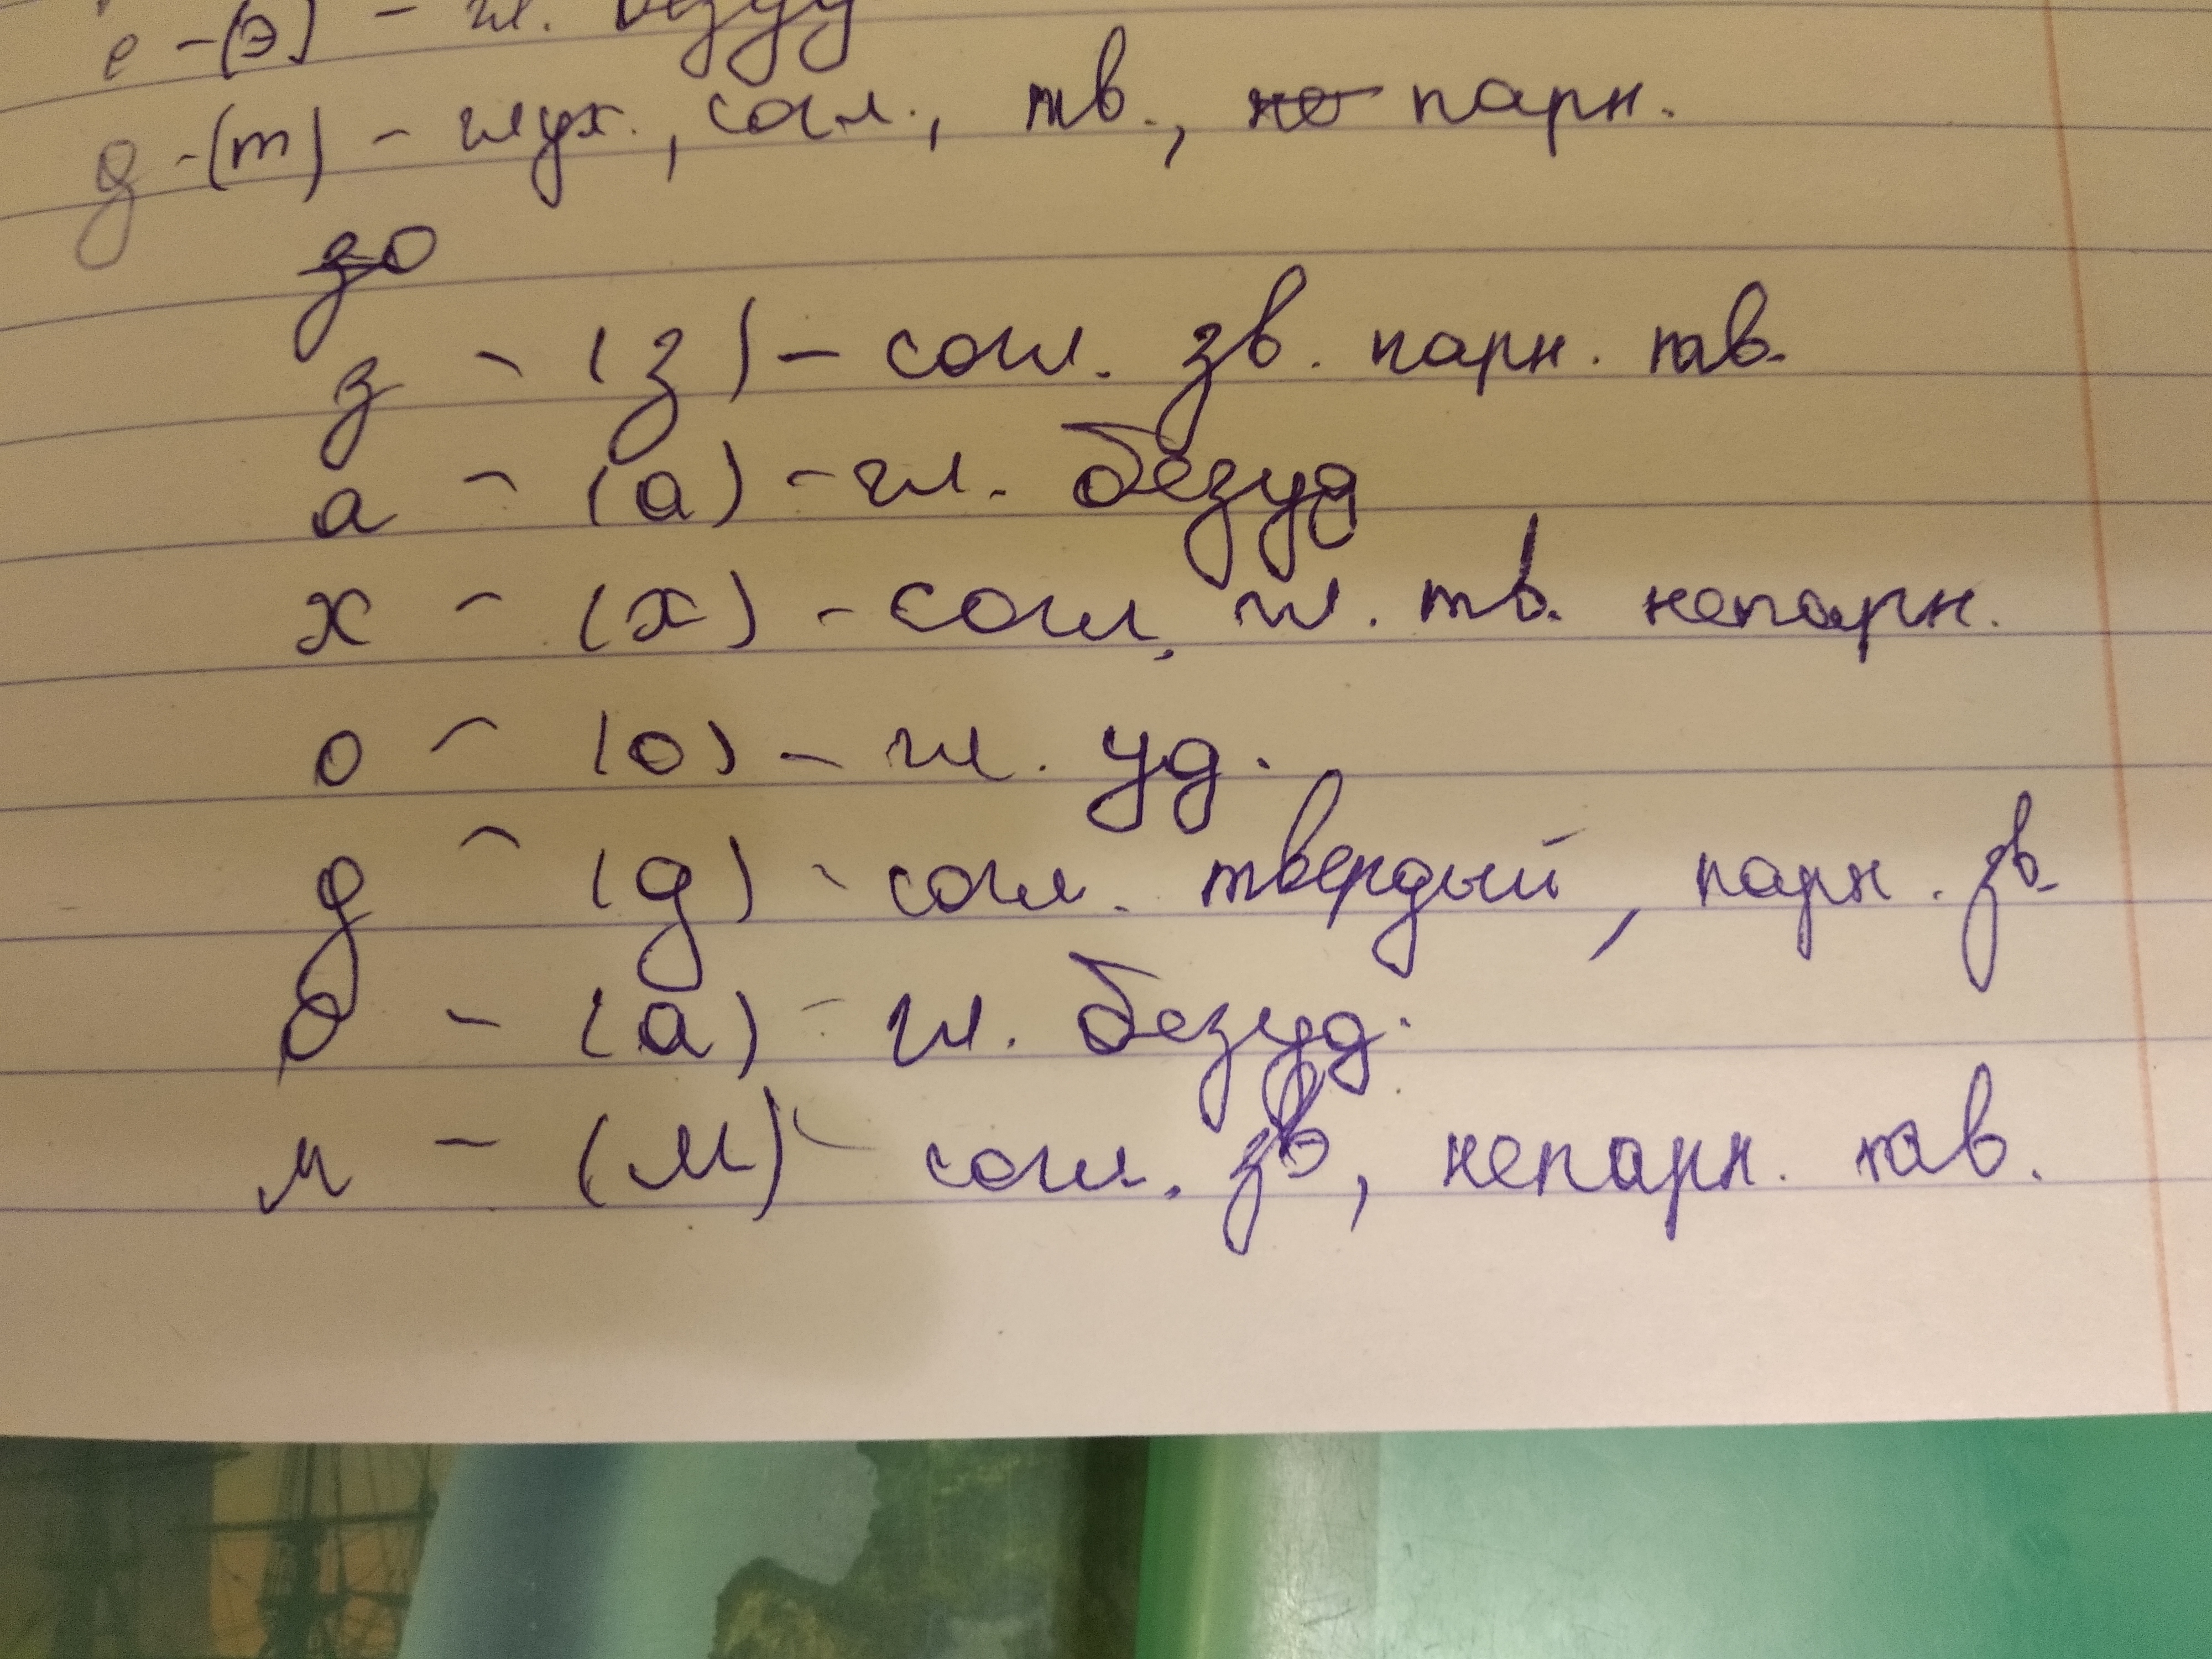 е - (э) - гл. безуд
д - (т) - глух., согл., тв., не парн.
зо
з - (з) - согл. зв. парн. тв.
а - (а) - гл. безуд
х - (х) - согл, гл. тв. непарн.
о - (о) - гл. уд.
д - (д) - согл. твердый, парн. зв.
о - (а) - гл. безуд.
м - (м) - согл. зв, непарн. тв.